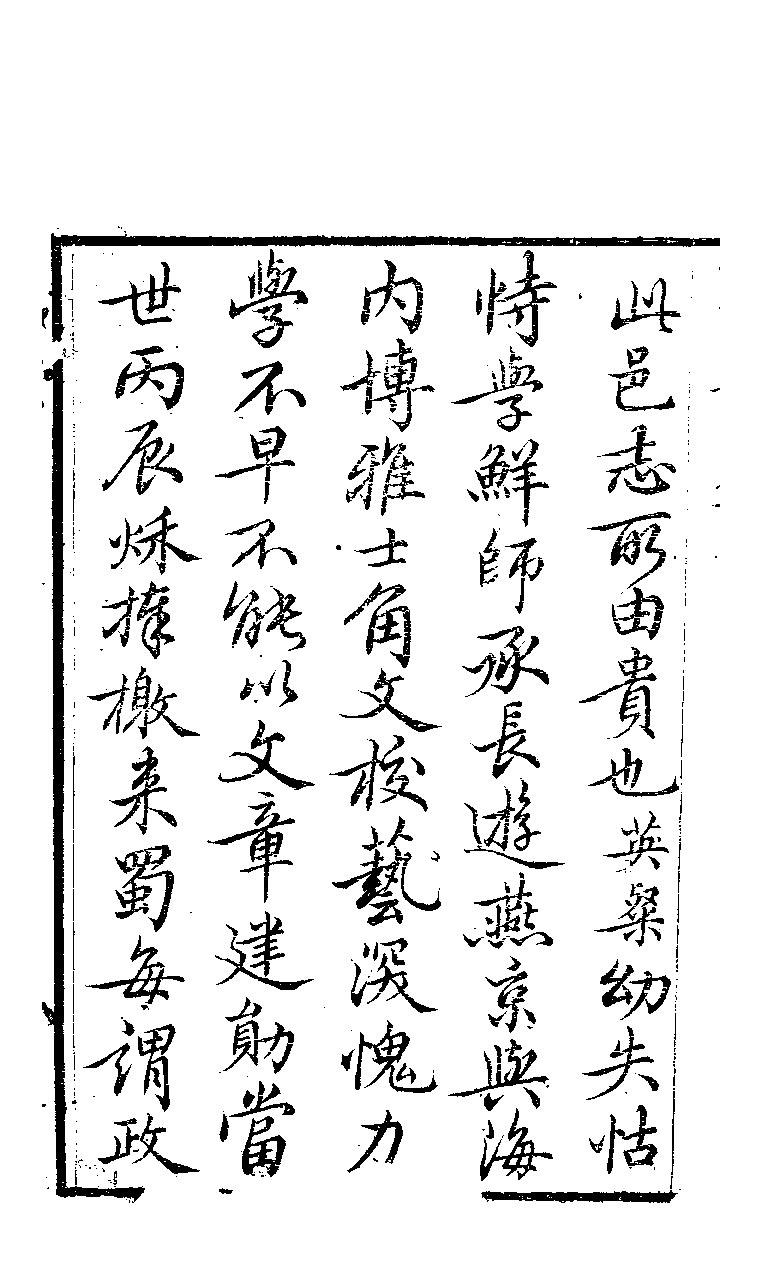 此邑志所由貴也英粲幼失怙
恃學鮮師承長遊燕京與海
内博雅士角文校藝深愧力
學不早不能以文章建勛當
世丙辰秌捧檄来蜀每謂政